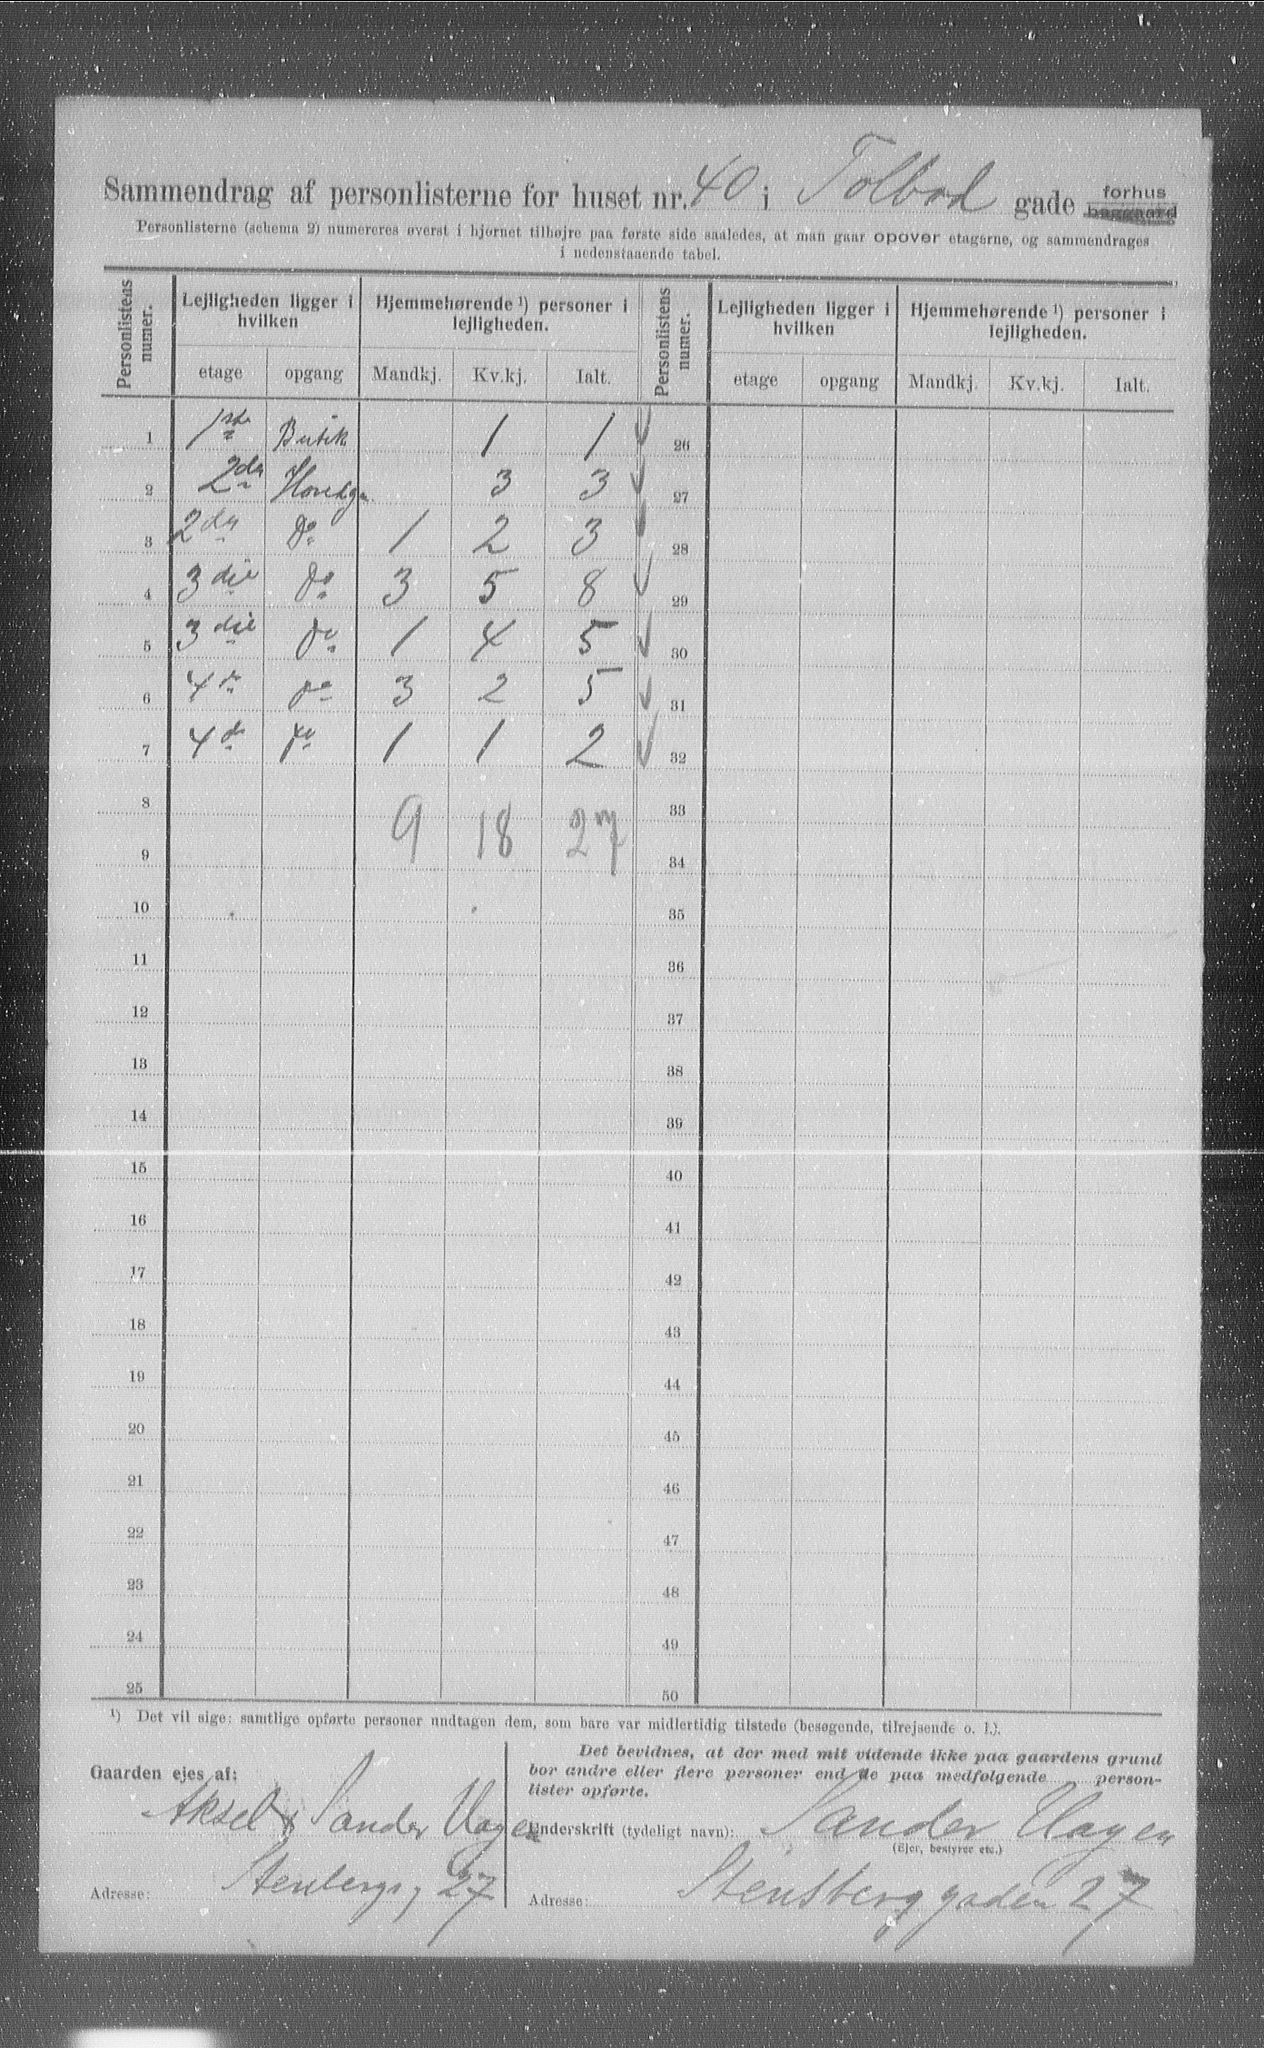 Sammendrag af personlisterne for huset nr. 40 i Tolbod gade forhus baggaard
Personlisterne (schema 2) numereres øverst i hjørnet tilhøjre paa første side saaledes, at man gaar opover etagerne, og sammendrages
i nedenstaaende tabel.
Personlistens numer. Lejligheden ligger i hvilken Hjemmehørende ¹) personer i lejligheden. Personlistens numer. Lejligheden ligger i hvilken Hjemmehørende ¹) personer i lejligheden.
etage opgang Mandkj. Kv.kj. Ialt. etage opgang Mandkj. Kv.kj. Ialt.
1 1ste Butik 1 1 26
2 2den Hovedg. 3 3 27
3 2den Do 1 2 3 28
4 3die Do 3 5 8 29
5 3die Do 1 4 5 30
6 4de Do 3 2 5 31
7 4de Do 1 1 2 32
8 33
9 9 18 27 34
10 35
11 36
12 37
13 38
14 39
15 40
16 41
17 42
18 43
19 44
20 45
21 46
22 47
23 48
24 49
25 50
¹) Det vil sige: samtlige opførte personer undtagen dem, som bare var midlertidig tilstede (besøgende, tilrejsende o. l.).
Gaarden ejes af:
Aksel & Sander Hagen
Adresse: Stenbergg 27
Det bevidnes, at der med mit vidende ikke paa gaardens grund
bor andre eller flere personer end de paa medfølgende person-
lister opførte.
Underskrift (tydeligt navn): Sander Hagen
(Ejer, bestyrer etc.)
Adresse: Stensberggaden 27